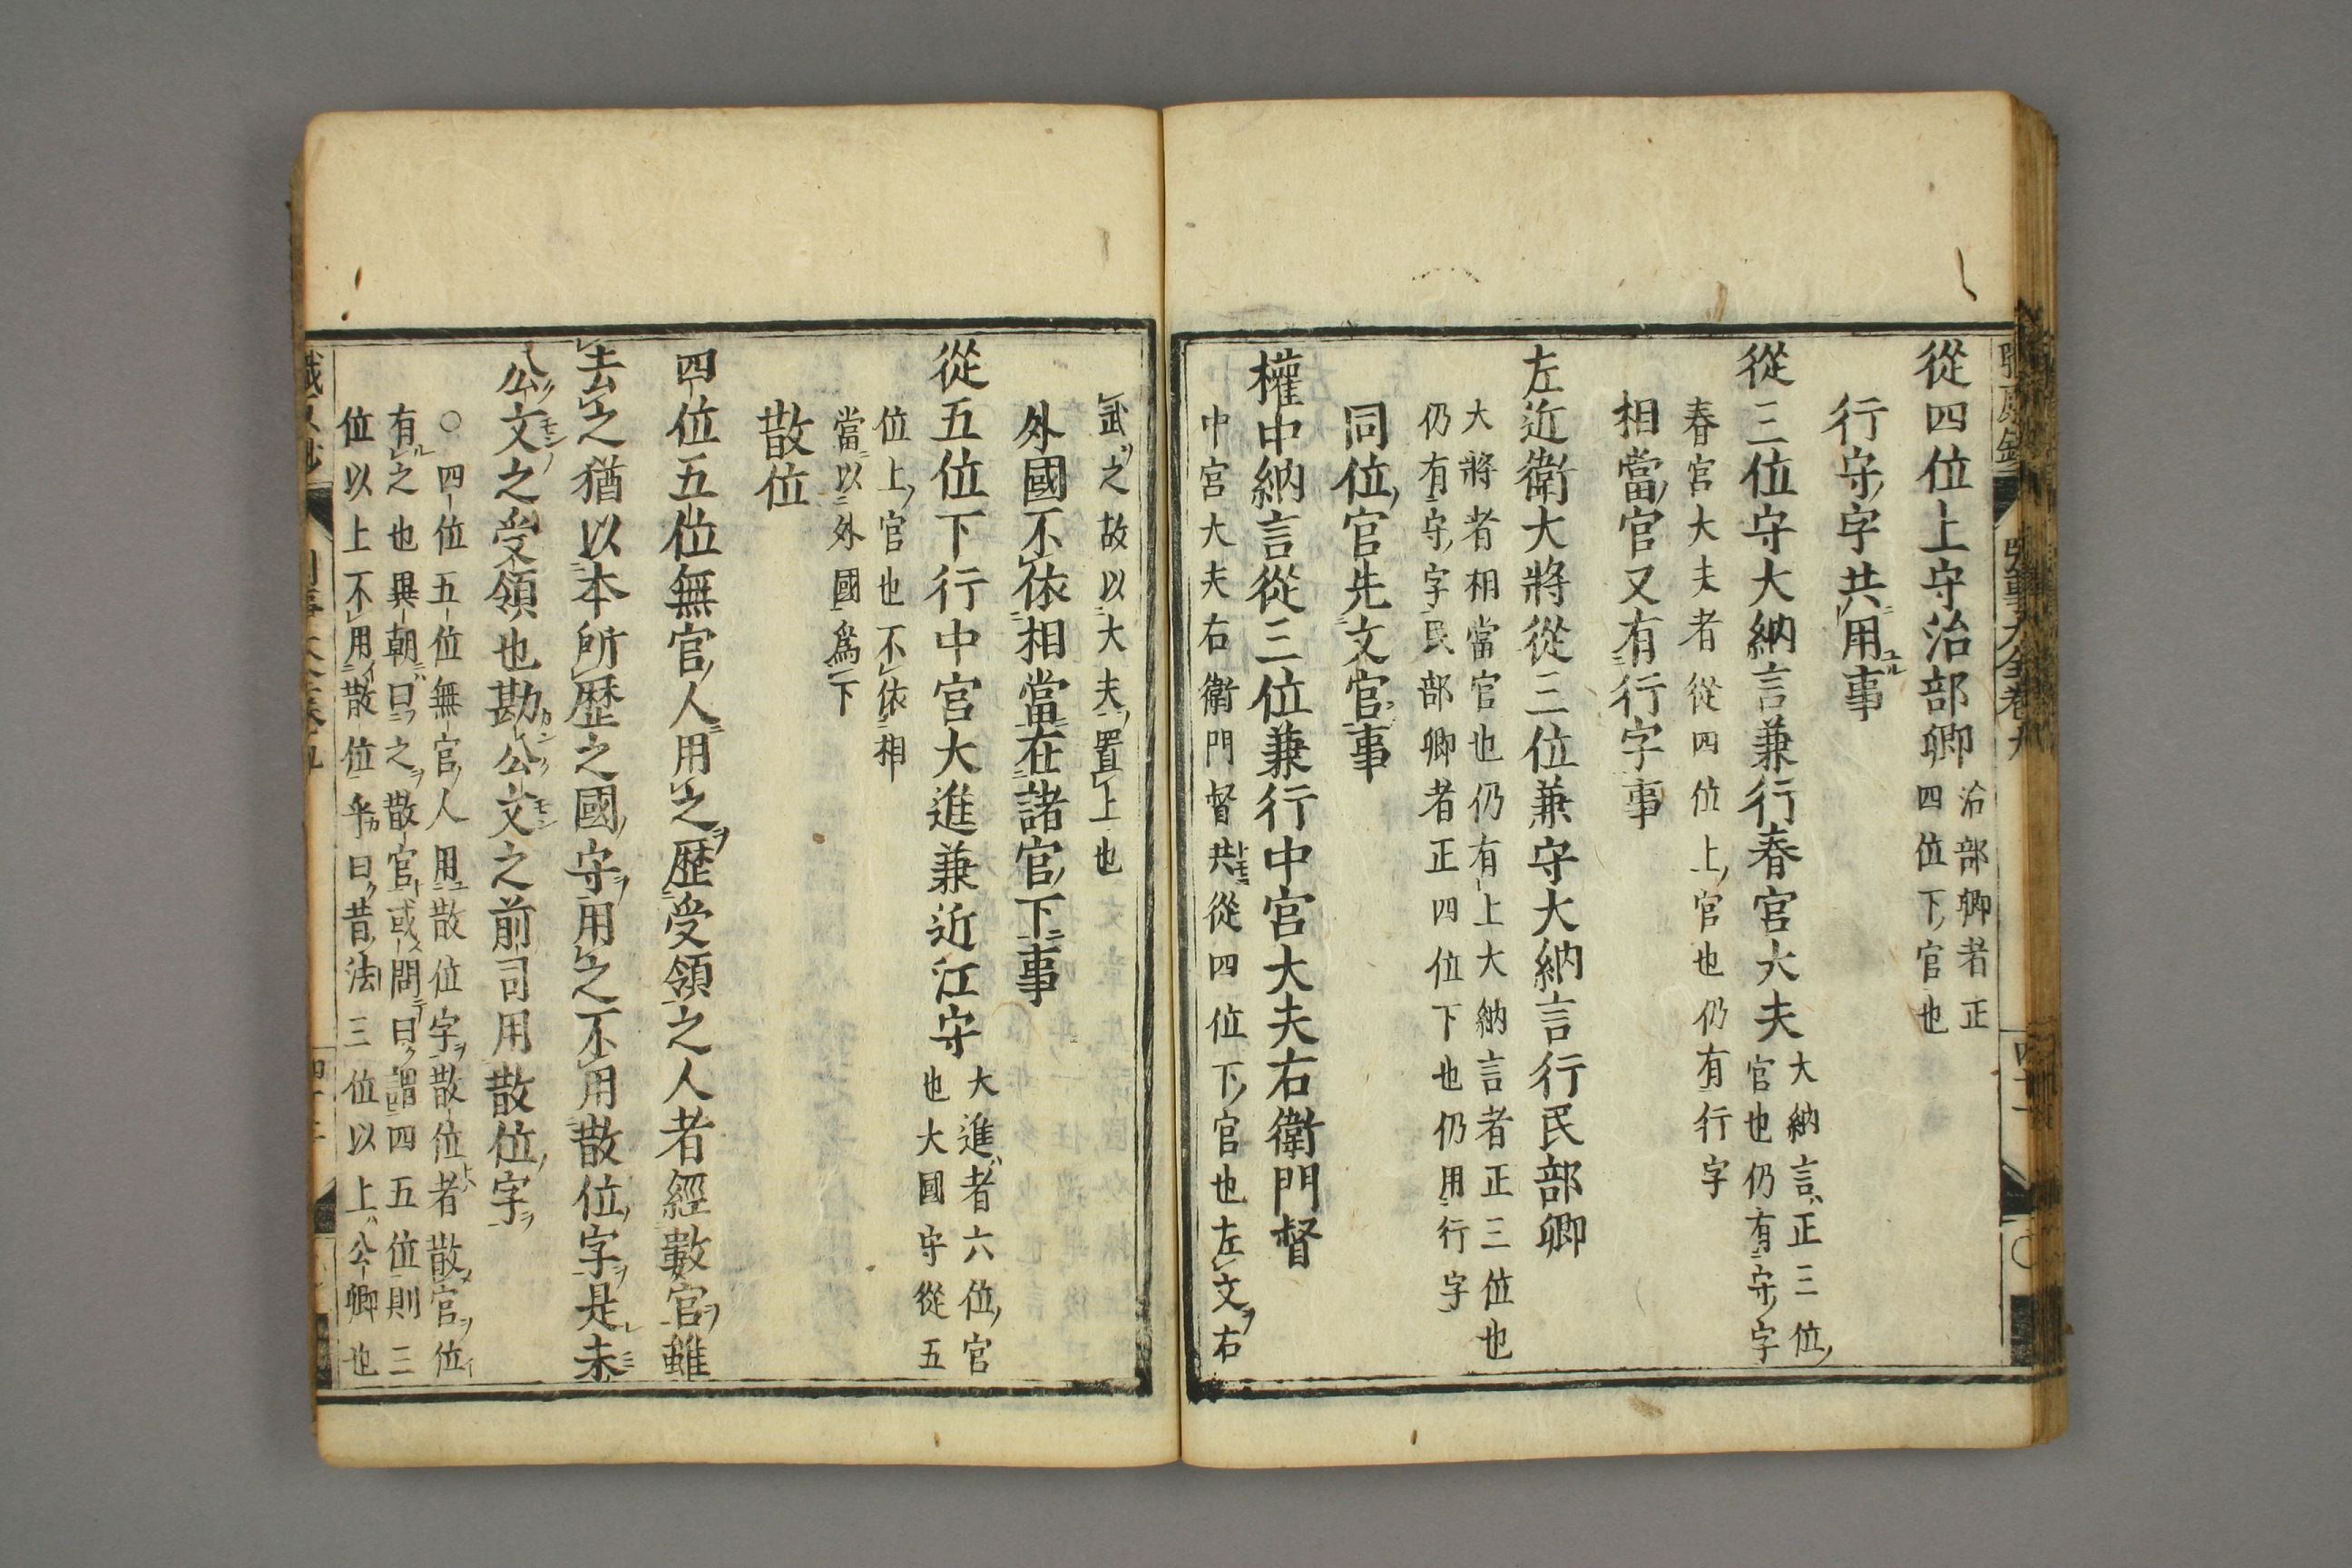 從四位上守治部卿治部卿者正
四位下官也
行守字共用事
從三位守大納言兼行春宮大夫大納言正三位
官也仍有守字
春宮大夫者從四位上官也仍有行字
相當官又有行字事
左近衛大將從三位兼守大納言行民部卿
大將者相當官也仍有上大納言者正三位也
仍有守字民部卿者正四位下也仍用行字
同位官先文官事
權中納言從三位兼行中宮大夫右衛門督
中宮大夫右衛門督共從四位下官也左文右
武之故以大夫置上也
外國不依相當在諸官下事
從五位下行中宮大進兼近江守大進者六位官
也大國守從五
位上官也不依相
當以外國爲下
散位
四位五位無官人用之歷受領之人者經數官雖
去之猶以本所歴之國守用之不用散位字是未
公文之受領也勘公文之前司用散位字
○四位五位無官人用散位字散位者散官位
有之也異朝曰之散官或問曰謂四五位則三
位以上不用散位乎曰昔法三位以上公卿也